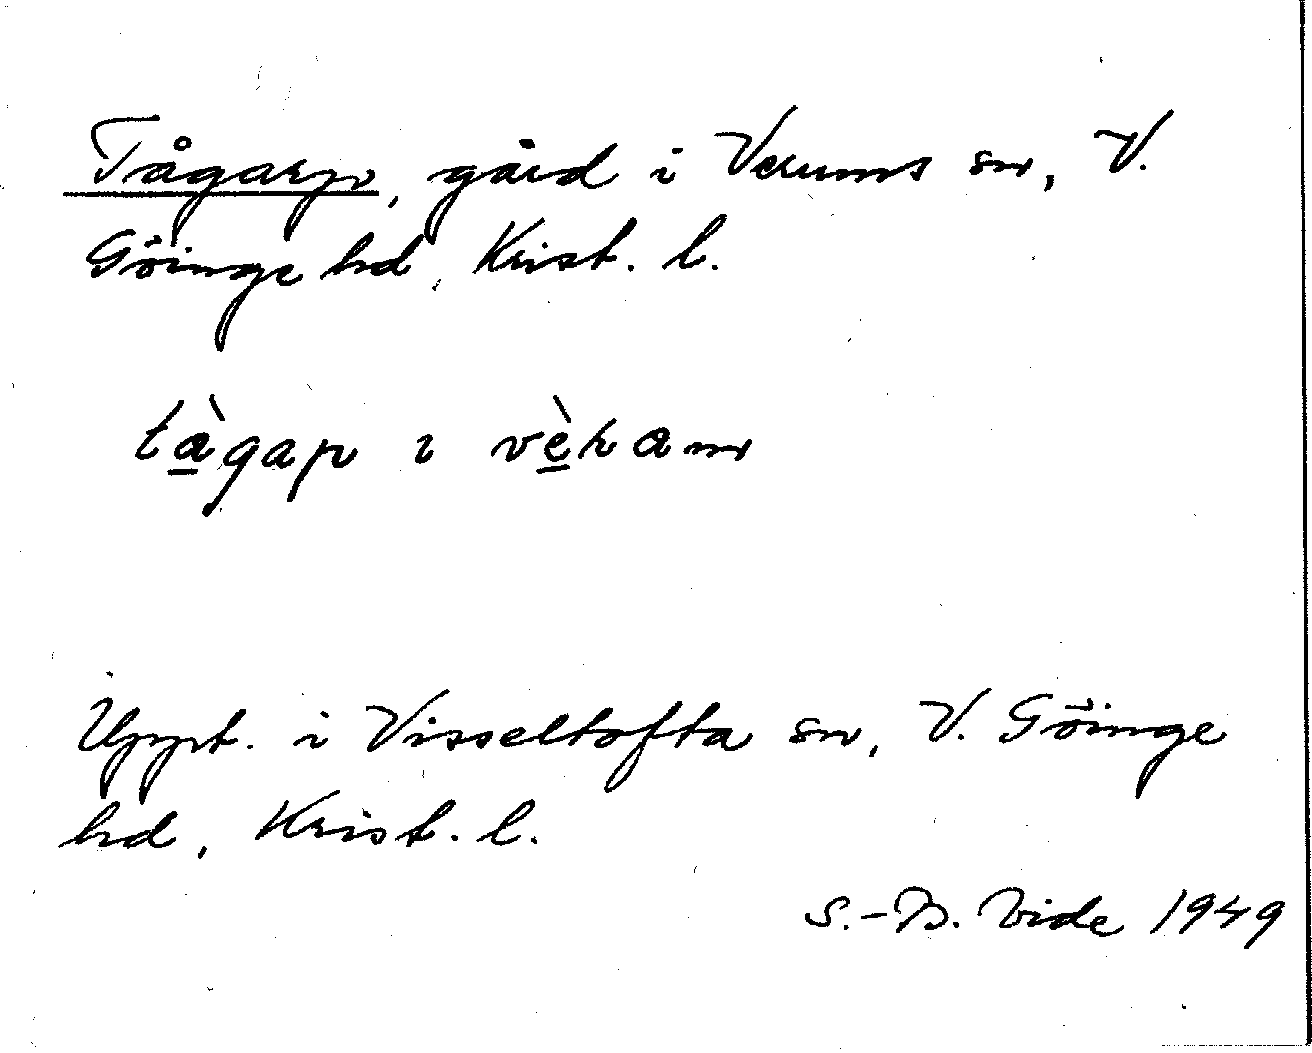 Tågarp, gård i Verums sn, V.
Göinge hd, Krist. l.
tà̲gap ı vè̲ram
Uppt. i Visseltofta sn, V. Göinge
hd, Krist. l.
S.-B. Vide 1949